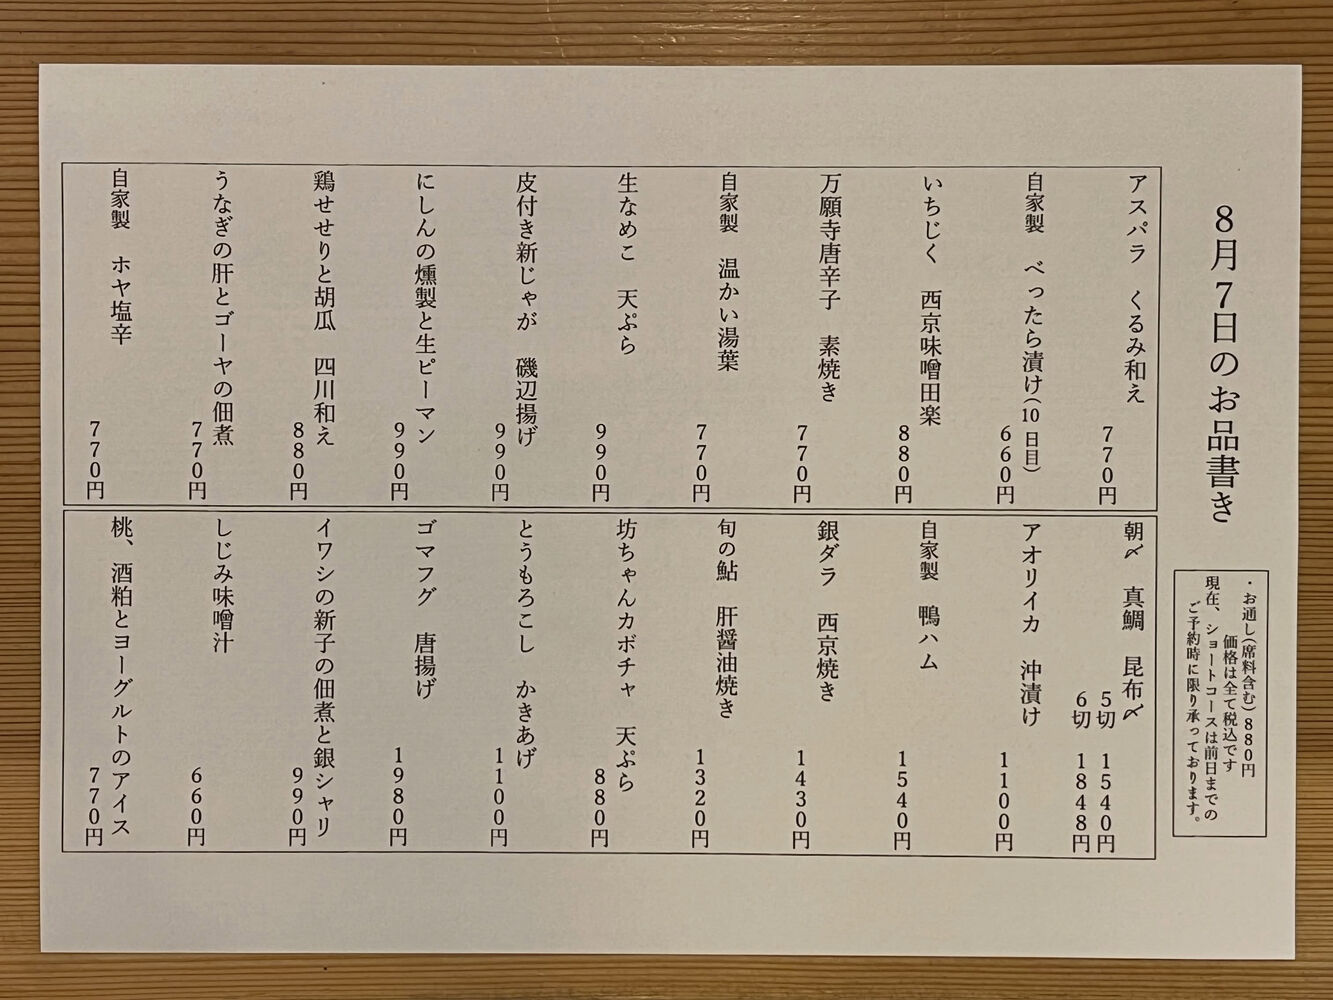 8月7日のお品書き
・お通し(席料含む)880円
価格は全て税込です
現在、ショートコースは前日までの
ご予約時に限り承っております。
アスパラ くるみ和え
770円
自家製 べったら漬け(10日目)
660円
いちじく 西京味噌田楽
880円
万願寺唐辛子 素焼き
770円
自家製 温かい湯葉
770円
生なめこ 天ぷら
990円
皮付き新じゃが 磯辺揚げ
990円
にしんの燻製と生ピーマン
990円
鶏せせりと胡瓜 四川和え
880円
うなぎの肝とゴーヤの佃煮
770円
自家製 ホヤ塩辛
770円
朝〆 真鯛 昆布〆
5切 1540円
6切 1848円
アオリイカ 沖漬け
1100円
自家製 鴨ハム
1540円
銀ダラ 西京焼き
1430円
旬の鮎 肝醤油焼き
1320円
坊ちゃんカボチャ 天ぷら
880円
とうもろこし かきあげ
1100円
ゴマフグ 唐揚げ
1980円
イワシの新子の佃煮と銀シャリ
990円
しじみ味噌汁
660円
桃、酒粕とヨーグルトのアイス
770円